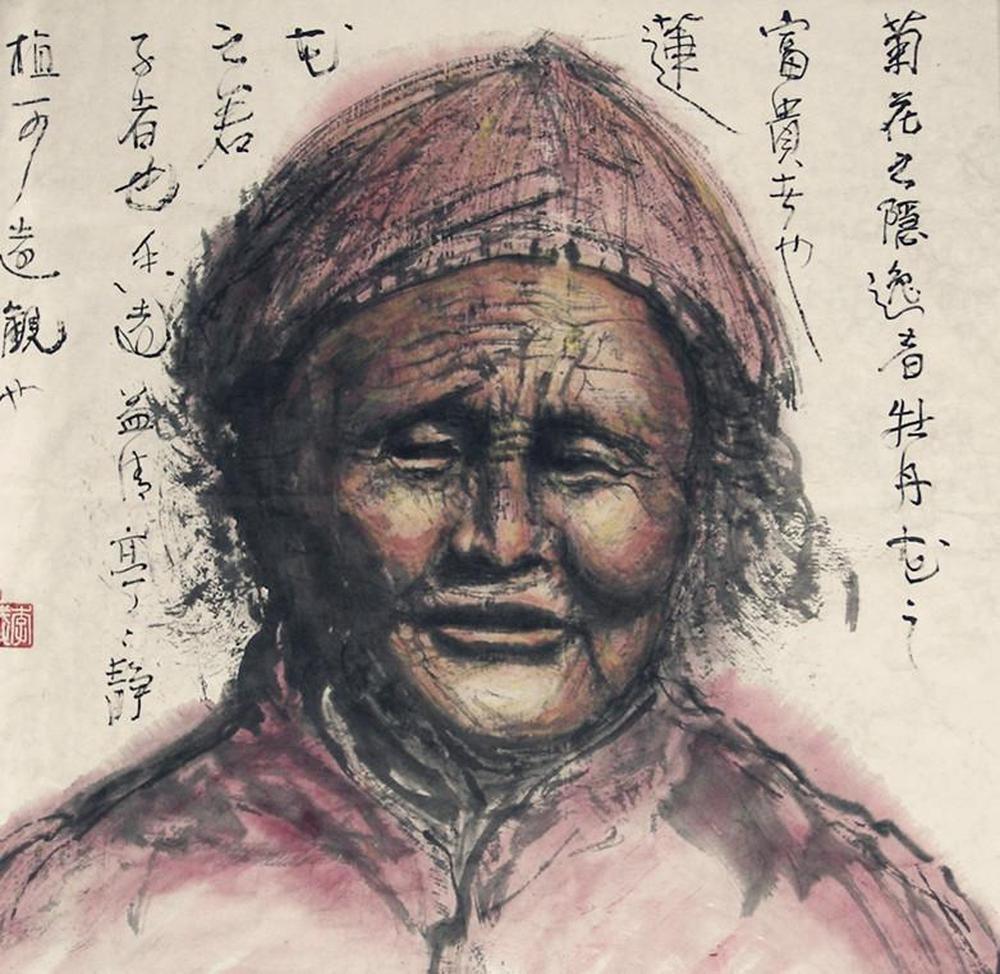 菊花之隱逸者牡丹花之
富貴者也
蓮
花
之君
子者也香遠益清亭々静
植可遠觀